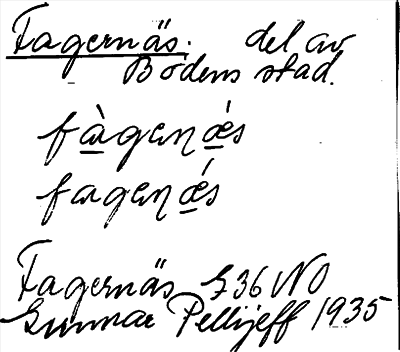 Fagernäs. del av
Bodens stad.
fàgenǽs
fagenǽs
Fagernäs 736 NO
Gunnar Pellijeff 1935